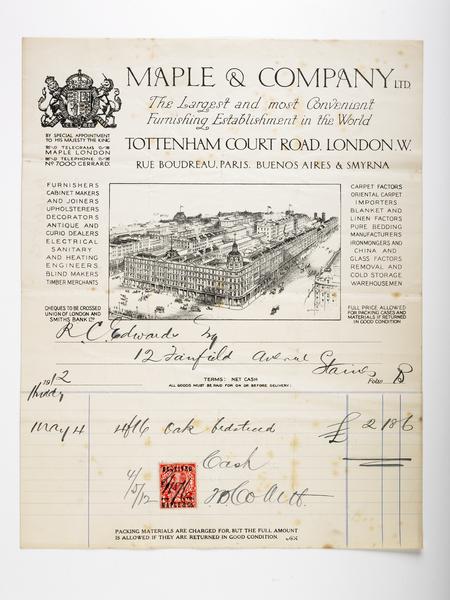 MAPLE & COMPANY LTD.
The Largest and most Convenient
Furnishing Establishment in the World
TOTTENHAM COURT ROAD, LONDON.W.
RUE BOUDREAU, PARIS. BUENOS AIRES & SMYRNA
BY SPECIAL APPOINTMENT
TO HIS MAJESTY THE KING
TELEGRAMS
MAPLE LONDON
TELEPHONE
No. 7000 GERRARD.
FURNISHERS
CABINET MAKERS
AND JOINERS
UPHOLSTERERS
DECORATORS
ANTIQUE AND
CURIO DEALERS
ELECTRICAL
SANITARY
AND HEATING
ENGINEERS
BLIND MAKERS
TIMBER MERCHANTS
CARPET FACTORS
ORIENTAL CARPET
IMPORTERS
BLANKET AND
LINEN FACTORS
PURE BEDDING
MANUFACTURERS
IRONMONGERS AND
CHINA AND
GLASS FACTORS
REMOVAL AND
COLD STORAGE
WAREHOUSEMEN
CHEQUES TO BE CROSSED
UNION OF LONDON AND
SMITHS BANK LTD
FULL PRICE ALLOWED
FOR PACKING CASES AND
MATERIALS IF RETURNED
IN GOOD CONDITION
R. C. Edwards
12 Fairfield Avenue
Staines
1912
TERMS: NET CASH
Folio B
ALL GOODS MUST BE PAID FOR ON OR BEFORE DELIVERY.
May 4 4ft6 Oak bedstead £ 2 18 6
Cash
4/5/12
PACKING MATERIALS ARE CHARGED FOR, BUT THE FULL AMOUNT
IS ALLOWED IF THEY ARE RETURNED IN GOOD CONDITION.